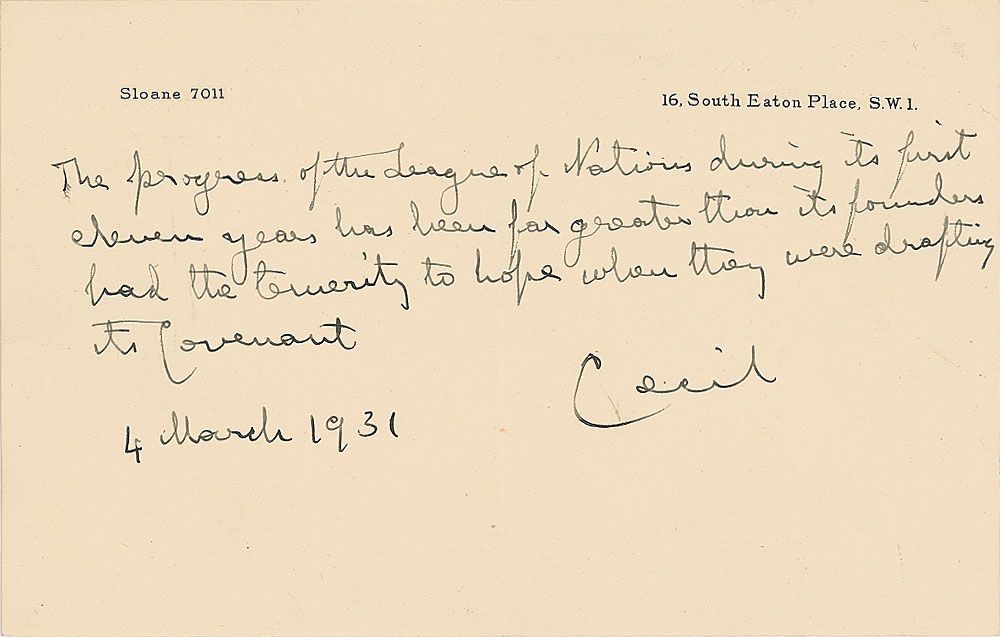 Sloane 7011
16, South Eaton Place, S.W.1.
The progress of the League of Nations during its first
eleven years has been far greater than its founders
had the temerity to hope when they were drafting
its Covenant
Cecil
4 March 1931